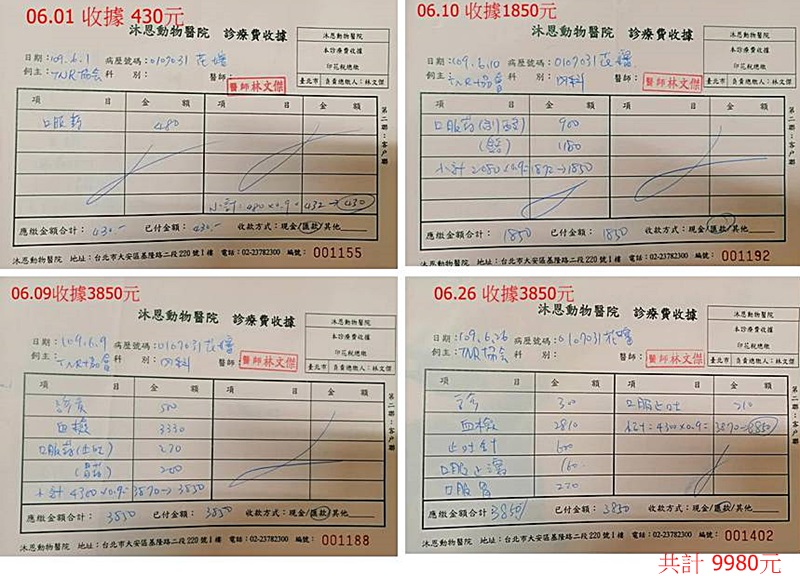 06.01 收據 430元
沐恩動物醫院 診療費收據
沐恩動物醫院
本診療費收據
印花稅總繳
臺北市 負責總繳人：林文傑
日期：109.6.1 病歷號碼：0107031 花嬸
飼主：TNR協會 科 別： 醫師：
醫師林文傑
項 目 金 額 項 目 金 額
口服藥 480
小計：480×0.9=432→430
應繳金額合計：430.- 已付金額：430.- 收款方式：現金/匯款/其他
第二聯：客戶聯
沐恩動物醫院 地址：台北市大安區基隆路二段220號1樓 電話：02-23782300 編號：001155
06.10 收據1850元
沐恩動物醫院 診療費收據
沐恩動物醫院
本診療費收據
印花稅總繳
臺北市 負責總繳人：林文傑
日期：109.6.10 病歷號碼：0107031 花嬸
飼主：TNR協會 科 別：內科 醫師：
醫師林文傑
項 目 金 額 項 目 金 額
口服藥 900
1180
小計 2080×0.9=1872→1850
應繳金額合計：1850 已付金額：1850 收款方式：現金/匯款/其他
第二聯：客戶聯
沐恩動物醫院 地址：台北市大安區基隆路二段220號1樓 電話：02-23782300 編號：001192
06.09收據3850元
沐恩動物醫院 診療費收據
沐恩動物醫院
本診療費收據
印花稅總繳
臺北市 負責總繳人：林文傑
日期：109.6.9 病歷號碼：0107031 花嬸
飼主：TNR協會 科 別：內科 醫師：
醫師林文傑
項 目 金 額 項 目 金 額
500
血檢 3330
口服藥(止吐) 270
200
小計 4300×0.9=3870→3850
應繳金額合計：3850 已付金額：3850 收款方式：現金/匯款/其他
第二聯：客戶聯
沐恩動物醫院 地址：台北市大安區基隆路二段220號1樓 電話：02-23782300 編號：001188
06.26 收據3850元
沐恩動物醫院 診療費收據
沐恩動物醫院
本診療費收據
印花稅總繳
臺北市 負責總繳人：林文傑
日期：109.6.26 病歷號碼：0107031 花嬸
飼主：TNR協會 科 別： 醫師：
醫師林文傑
項 目 金 額 項 目 金 額
300 口服止吐 210
血檢 2810 小計=4300×0.9=3870→3850
止吐針 600
口服止瀉 160
口服胃 220
應繳金額合計：3850 已付金額：3850 收款方式：現金/匯款/其他
第二聯：客戶聯
沐恩動物醫院 地址：台北市大安區基隆路二段220號1樓 電話：02-23782300 編號：001402
共計 9980元